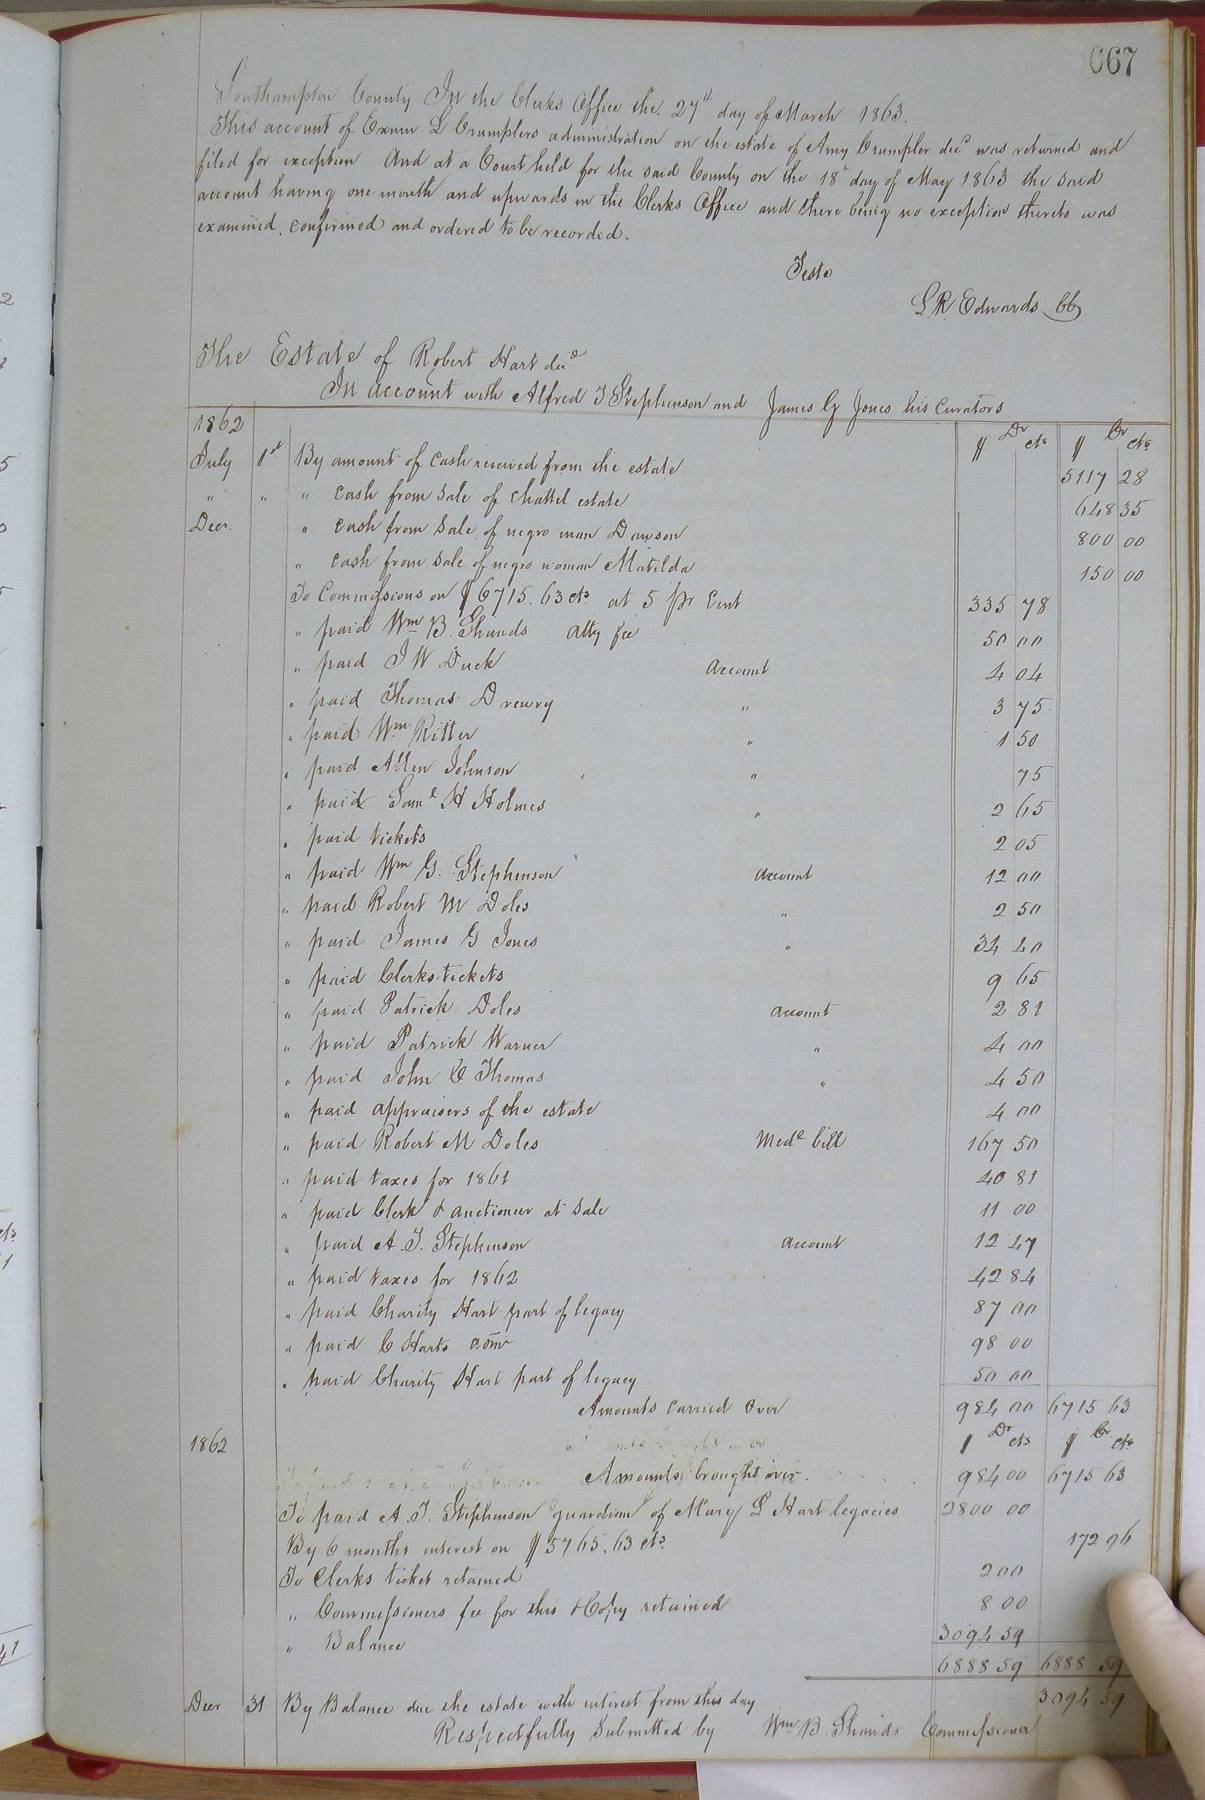 667
Southampton County In the Clerks Office the 27th day of March 1863.
This account of Exum L Crumplers administration on the estate of Amy Crumpler decd was returned and
filed for exception And at a Court held for the said County on the 18th day of May 1863 the said
account having one month and upwards in the Clerks Office and there being no exception thereto was
examined, confirmed and ordered to be recorded.
Teste
L R Edwards CC
The Estate of Robert Hart decd
In account with Alfred T Stephenson and James G Jones his Curators
1862 $ Dr cts $ Cr cts
July 1st By amount of cash received from the estate 5117 28
" " " cash from sale of chattel estate 648 35
Decr. " cash from sale of negro man Dawson 800 00
" cash from sale of negro woman Matilda 150 00
To Commissions on $6715.63 cts at 5 pr Cent 335 78
" paid Wm B. Shands Atty fee 50 00
" paid J W Duck Account 4 04
" paid Thomas Drewry " 3 75
" paid Wm Ritter " 1 50
" paid Allen Johnson " 75
" paid Saml H Holmes " 2 65
" paid tickets 2 05
" paid Wm G. Stephenson account 12 00
" paid Robert M Doles " 2 50
" paid James G Jones " 34 40
" paid Clerks tickets 9 65
" paid Patrick Doles account 2 81
" paid Patrick Warner " 4 00
" paid John C Thomas " 4 50
" paid appraisers of the estate 4 00
" paid Robert M Doles Medl bill 167 50
" paid taxes for 1861 40 81
" paid Clerk & auctioneer at sale 11 00
" paid A. T. Stephenson account 12 47
" paid taxes for 1862 42 84
" paid Charity Hart part of legacy 87 00
" paid C Harts 98 00
" paid Charity Hart part of legacy 50 00
Amounts carried over 984 00 6715 63
1862 $ Dr cts $ Cr cts
Amounts brought over. 984 00 6715 63
To paid A. T. Stephenson guardian of Mary L Hart legacies 2800 00
By 6 months interest on $5765.63 cts 172 96
To Clerks ticket retained 2 00
" Commissioners fee for this & Copy retained 8 00
" Balance 3094 59
6888 59 6888 59
Decr 31 By Balance due the estate with interest from this day 3094 59
Respectfully Submitted by Wm B. Shands Commissioner